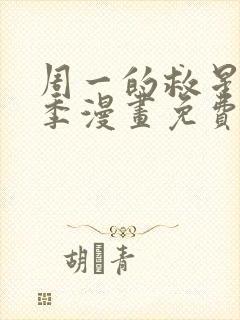 周一的救星
季漫畫免費
胡 青